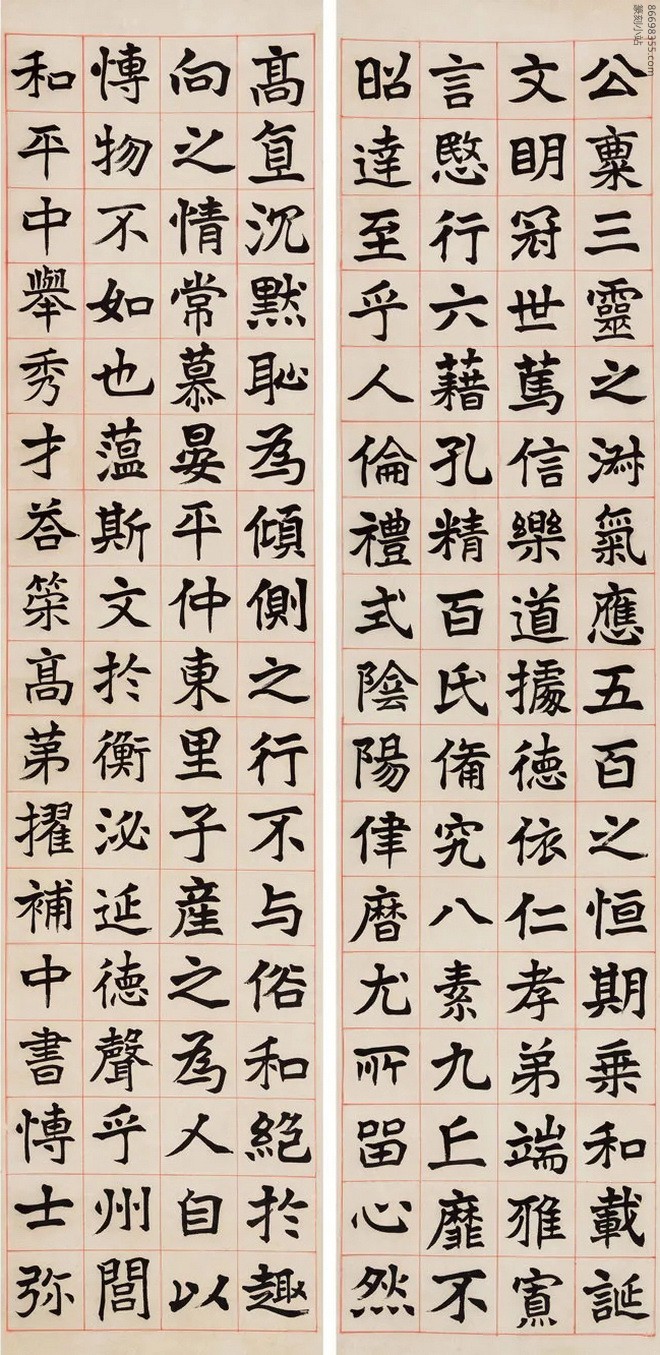 公稟三靈之淋氣應五百之恒期乗和載誕
文明冠世篤信樂道據德依仁孝弟端雅寡
言愍行六藉孔精百氏俻究八素九丘靡不
昭達至乎人倫禮式陰陽律曆尤所留心然
髙直沉默恥為傾側之行不与俗和絕於趣
向之情常慕晏平仲東里子產之為人自以
愽物不如也蕰斯文於衡泌延德聲乎州閭
和平中舉秀才荅策髙苐擢補中書愽士弥
86698355.com
篆刻小站